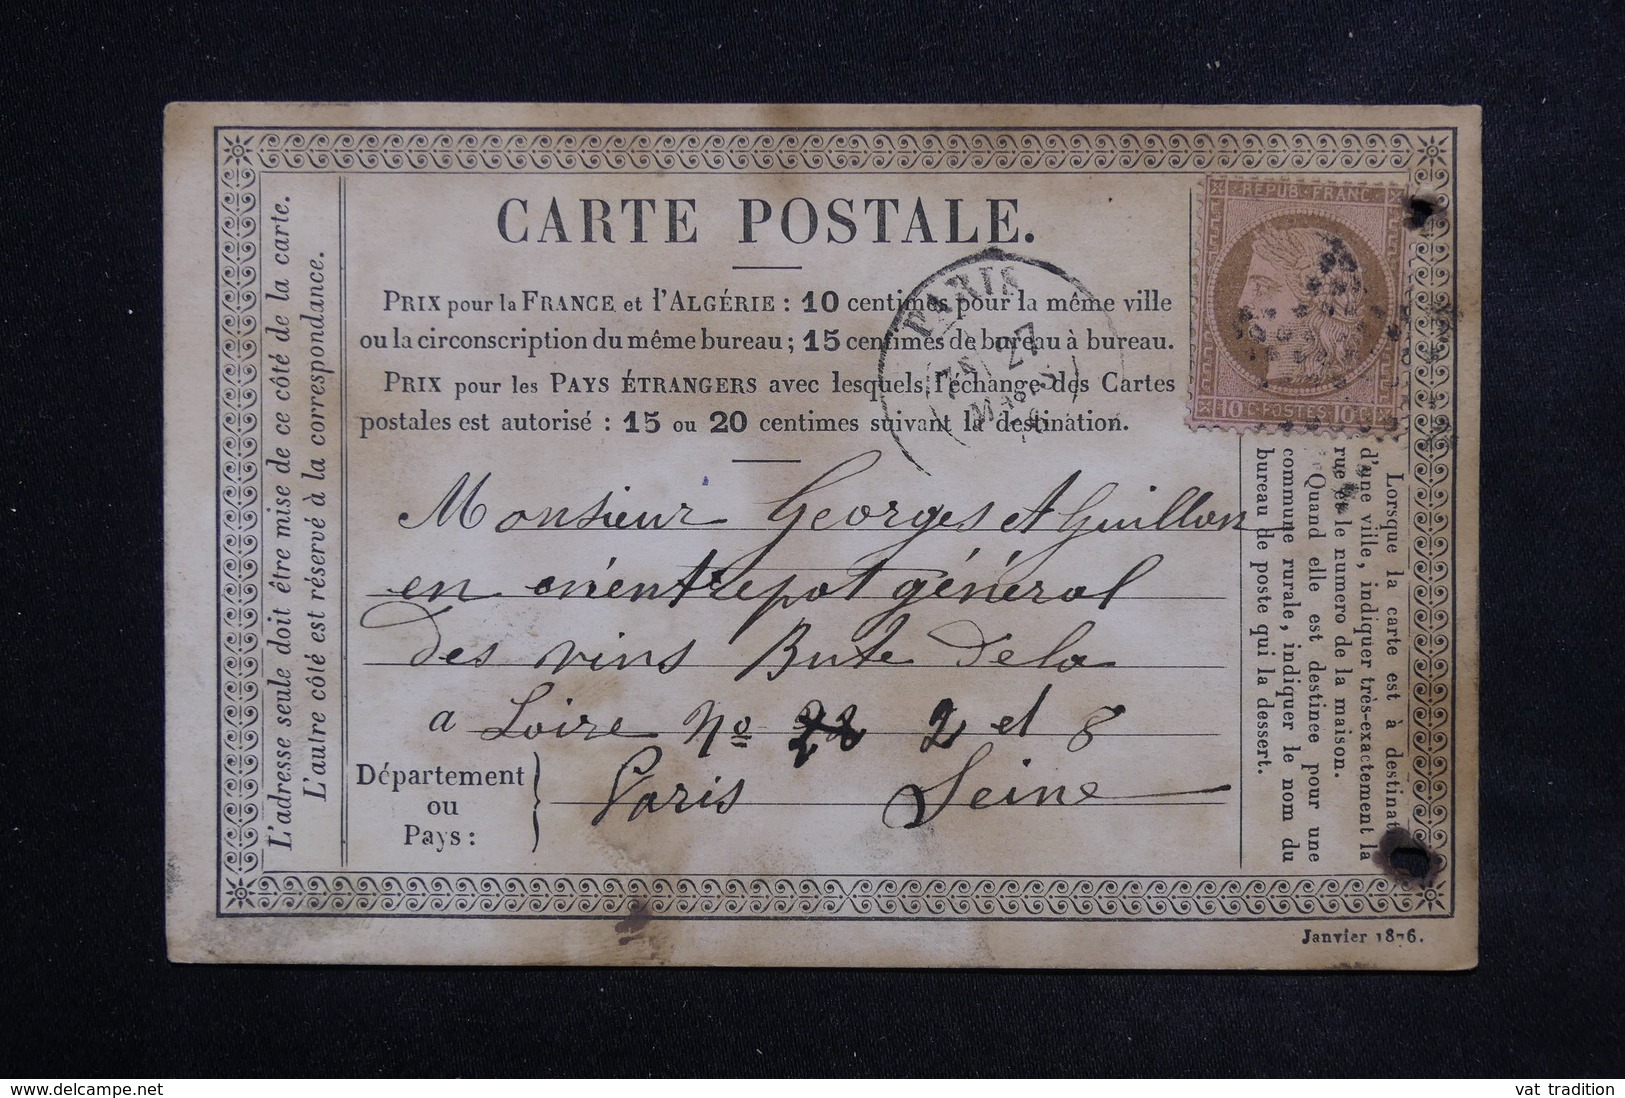 CARTE POSTALE.
PRIX pour la FRANCE et l'ALGÉRIE : 10 centimes pour la même ville
ou la circonscription du même bureau ; 15 centimes de bureau à bureau.
PRIX pour les PAYS ÉTRANGERS avec lesquels l'échange des Cartes
postales est autorisé : 15 ou 20 centimes suivant la destination.
Monsieur Georges et Guillon
en entrepot général
des vins Bute de la
a Loire No 2 et 8
Département
ou
Pays :
Paris Seine
L'adresse seule doit être mise de ce côté de la carte.
L'autre côté est réservé à la correspondance.
REPUB · FRANC
10 C · POSTES 10 C
PARIS
27
MARS
Lorsque la carte est à destinat
d'une ville, indiquer très-exactement la
rue et le numero de la maison.
Quand elle est destinée pour une
commune rurale, indiquer le nom du
bureau de poste qui la dessert.
Janvier 1876.
delcampe.net
vat tradition